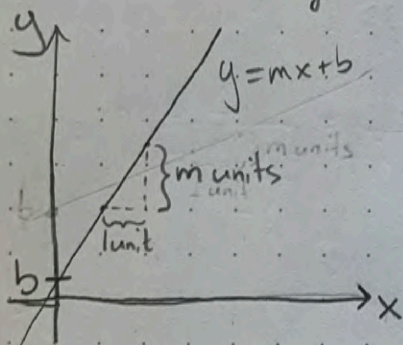 y
y=mx+b
m units
m units
1 unit
1 unit
b
b
x